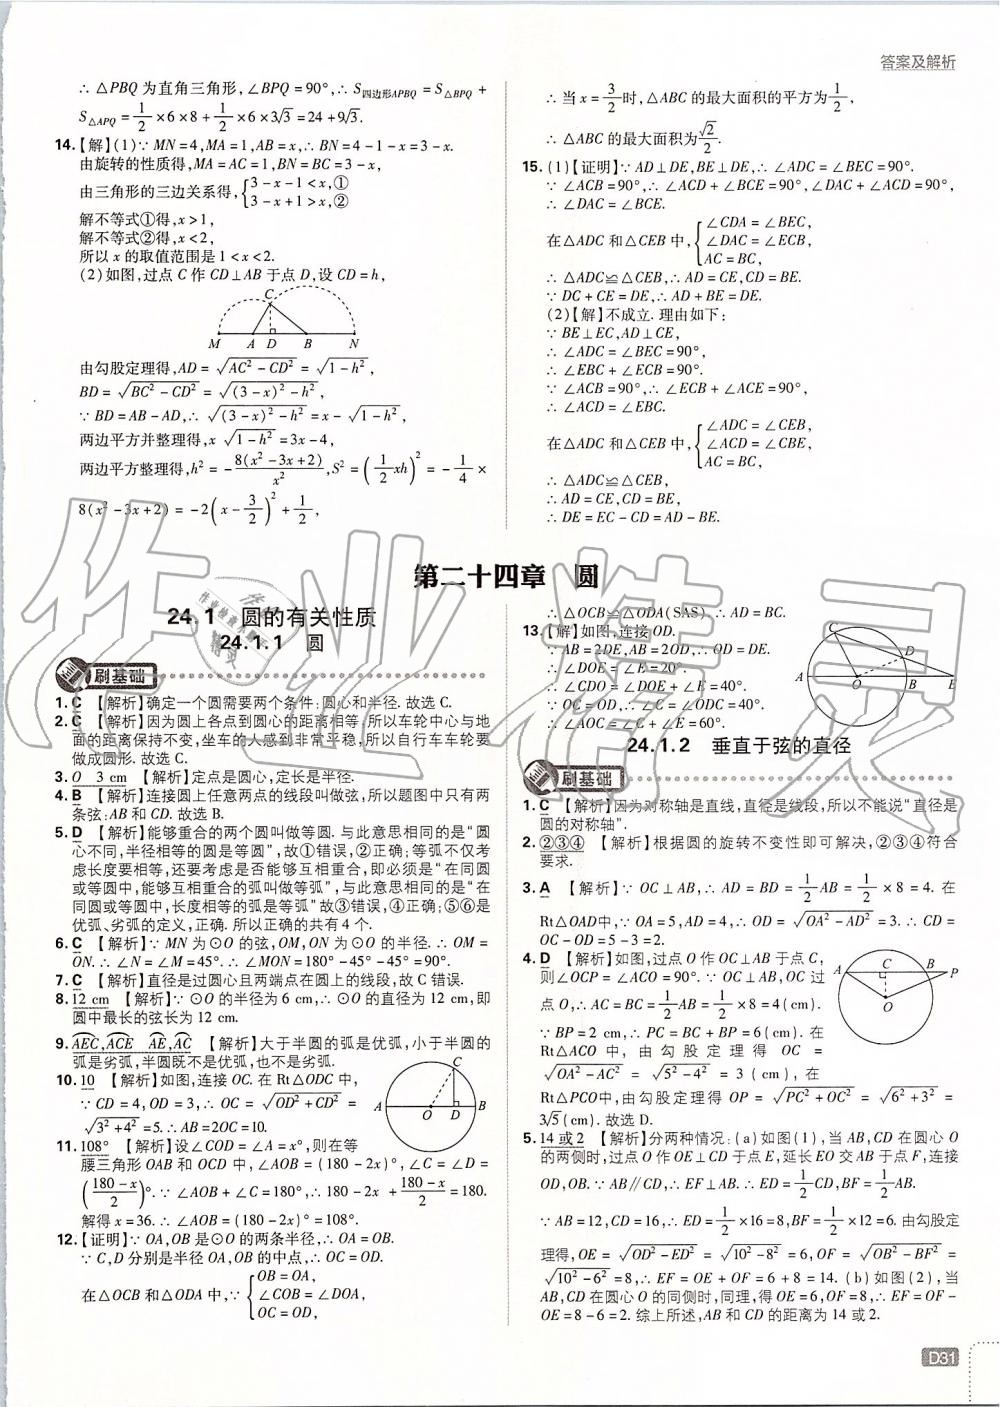 答案及解析
∴△PBQ 为直角三角形,∠BPQ=90°,∴S四边形APBQ=S△BPQ+
S△APQ=1/2×6×8+1/2×6×3√3=24+9√3.
14.【解】(1)∵MN=4,MA=1,AB=x,∴BN=4-1-x=3-x.
由旋转的性质得,MA=AC=1,BN=BC=3-x,
由三角形的三边关系得,{3-x-1<x,①
3-x+1>x,②
解不等式①得,x>1,
解不等式②得,x<2,
所以 x 的取值范围是 1<x<2.
(2)如图,过点 C 作 CD⊥AB 于点 D,设 CD=h,
C
M A D B N
由勾股定理得,AD=√(AC²-CD²)=√(1-h²),
BD=√(BC²-CD²)=√((3-x)²-h²),
∵BD=AB-AD,∴√((3-x)²-h²)=x-√(1-h²),
两边平方并整理得,x√(1-h²)=3x-4,
两边平方整理得,h²=-8(x²-3x+2)/x²,S²=(1/2xh)²=-1/4×
8(x²-3x+2)=-2(x-3/2)²+1/2,
∴当 x=3/2时,△ABC 的最大面积的平方为1/2,
∴△ABC 的最大面积为√2/2.
15.(1)【证明】∵AD⊥DE,BE⊥DE,∴∠ADC=∠BEC=90°.
∵∠ACB=90°,∴∠ACD+∠BCE=90°,∠DAC+∠ACD=90°,
∴∠DAC=∠BCE.
在△ADC 和△CEB 中,{∠CDA=∠BEC,
∠DAC=∠ECB,
AC=BC,
∴△ADC≌△CEB,∴AD=CE,CD=BE.
∵DC+CE=DE,∴AD+BE=DE.
(2)【解】不成立. 理由如下:
∵BE⊥EC,AD⊥CE,
∴∠ADC=∠BEC=90°,
∴∠EBC+∠ECB=90°.
∵∠ACB=90°,∴∠ECB+∠ACE=90°,
∴∠ACD=∠EBC.
在△ADC 和△CEB 中,{∠ADC=∠CEB,
∠ACD=∠CBE,
AC=BC,
∴△ADC≌△CEB,
∴AD=CE,CD=BE,
∴DE=EC-CD=AD-BE.
第二十四章 圆
24.1 圆的有关性质
24.1.1 圆
刷基础
1.C 【解析】确定一个圆需要两个条件:圆心和半径. 故选 C.
2.C 【解析】因为圆上各点到圆心的距离相等,所以车轮中心与地
面的距离保持不变,坐车的人感到非常平稳,所以自行车车轮要
做成圆形. 故选 C.
3.O 3 cm 【解析】定点是圆心,定长是半径.
4.B 【解析】连接圆上任意两点的线段叫做弦,所以题图中只有两
条弦:AB 和 CD. 故选 B.
5.D 【解析】能够重合的两个圆叫做等圆. 与此意思相同的是“圆
心不同,半径相等的圆是等圆”,故①错误,②正确;等弧不仅考
虑长度要相等,还要考虑是否能够互相重合,即必须是“在同圆
或等圆中,能够互相重合的弧叫做等弧”,与此意思相同的是“在
同圆或等圆中,长度相等的弧是等弧”故③错误,④正确;⑤⑥是
优弧、劣弧的定义,正确. 所以正确的共有 4 个.
6.C 【解析】∵MN 为⊙O 的弦,OM,ON 为⊙O 的半径. ∴OM=
ON. ∴∠N=∠M=45°. ∴∠MON=180°-45°-45°=90°.
7.C 【解析】直径是过圆心且两端点在圆上的线段,故 C 错误.
8.12 cm 【解析】∵⊙O 的半径为 6 cm,∴⊙O 的直径为 12 cm,即
圆中最长的弦长为 12 cm.
9.AEC,ACE AE,AC 【解析】大于半圆的弧是优弧,小于半圆的
弧是劣弧,半圆既不是优弧,也不是劣弧.
10.10 【解析】如图,连接 OC. 在 Rt△ODC 中,
∵CD=4,OD=3,∴OC=√(OD²+CD²)=
√(3²+4²)=5. ∴AB=2OC=10.
C
A O D B
11.108° 【解析】设∠COD=∠A=x°,则在等
腰三角形 OAB 和 OCD 中,∠AOB=(180-2x)°,∠C=∠D=
((180-x)/2)°. ∵∠AOB+∠C=180°,∴180-2x+(180-x)/2=180.
解得 x=36. ∴∠AOB=(180-2x)°=108°.
12.【证明】∵OA,OB 是⊙O 的两条半径,∴OA=OB.
∵C,D 分别是半径 OA,OB 的中点,∴OC=OD.
在△OCB 和△ODA 中,∵{OB=OA,
∠COB=∠DOA,
OC=OD,
∴△OCB≌△ODA(SAS). ∴AD=BC.
13.【解】如图,连接 OD.
∵AB=2DE,AB=2OD,∴OD=DE.
∴∠DOE=∠E=20°.
∴∠CDO=∠DOE+∠E=40°.
∵OC=OD,∴∠C=∠ODC=40°.
∴∠AOC=∠C+∠E=60°.
C D
A O B E
24.1.2 垂直于弦的直径
刷基础
1.C 【解析】因为对称轴是直线,直径是线段,所以不能说“直径是
圆的对称轴”.
2.②③④ 【解析】根据圆的旋转不变性即可解决,②③④符合
要求.
3.A 【解析】∵OC⊥AB,∴AD=BD=1/2AB=1/2×8=4. 在
Rt△OAD中,∵OA=5,AD=4,∴OD=√(OA²-AD²)=3. ∴CD=
OC-OD=5-3=2.
4.D 【解析】如图,过点 O 作 OC⊥AB 于点 C,
则∠OCP=∠ACO=90°. ∵OC⊥AB,OC 过
点 O,∴AC=BC=1/2AB=1/2×8=4(cm).
∵BP=2 cm,∴PC=BC+BP=6(cm). 在
Rt△ACO 中,由勾股定理得 OC=
√(OA²-AC²)=√(5²-4²)=3(cm),在
Rt△PCO中,由勾股定理得 OP=√(PC²+OC²)=√(6²+3²)=
3√5(cm). 故选 D.
A C B P
O
5.14 或 2 【解析】分两种情况:(a)如图(1),当 AB,CD 在圆心 O
的两侧时,过点 O 作 OE⊥CD 于点 E,延长 EO 交 AB 于点 F,连接
OD,OB. ∵AB∥CD,∴EF⊥AB. ∴ED=1/2CD,BF=1/2AB.
∵AB=12,CD=16,∴ED=1/2×16=8,BF=1/2×12=6. 由勾股定
理得,OE=√(OD²-ED²)=√(10²-8²)=6,OF=√(OB²-BF²)=
√(10²-6²)=8,∴EF=OE+OF=6+8=14. (b)如图(2),当
AB,CD 在圆心 O 的同侧时,同理,得 OE=6,OF=8,∴EF=OF-
OE=8-6=2. 综上所述,AB 和 CD 的距离为 14 或 2.
D31
作业精灵